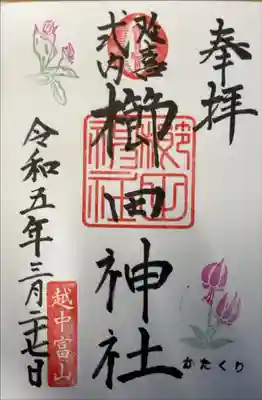 奉拝
延喜
式内
櫛田神社
櫛田
神社
令和五年三月二七日
越中富山
かたくり